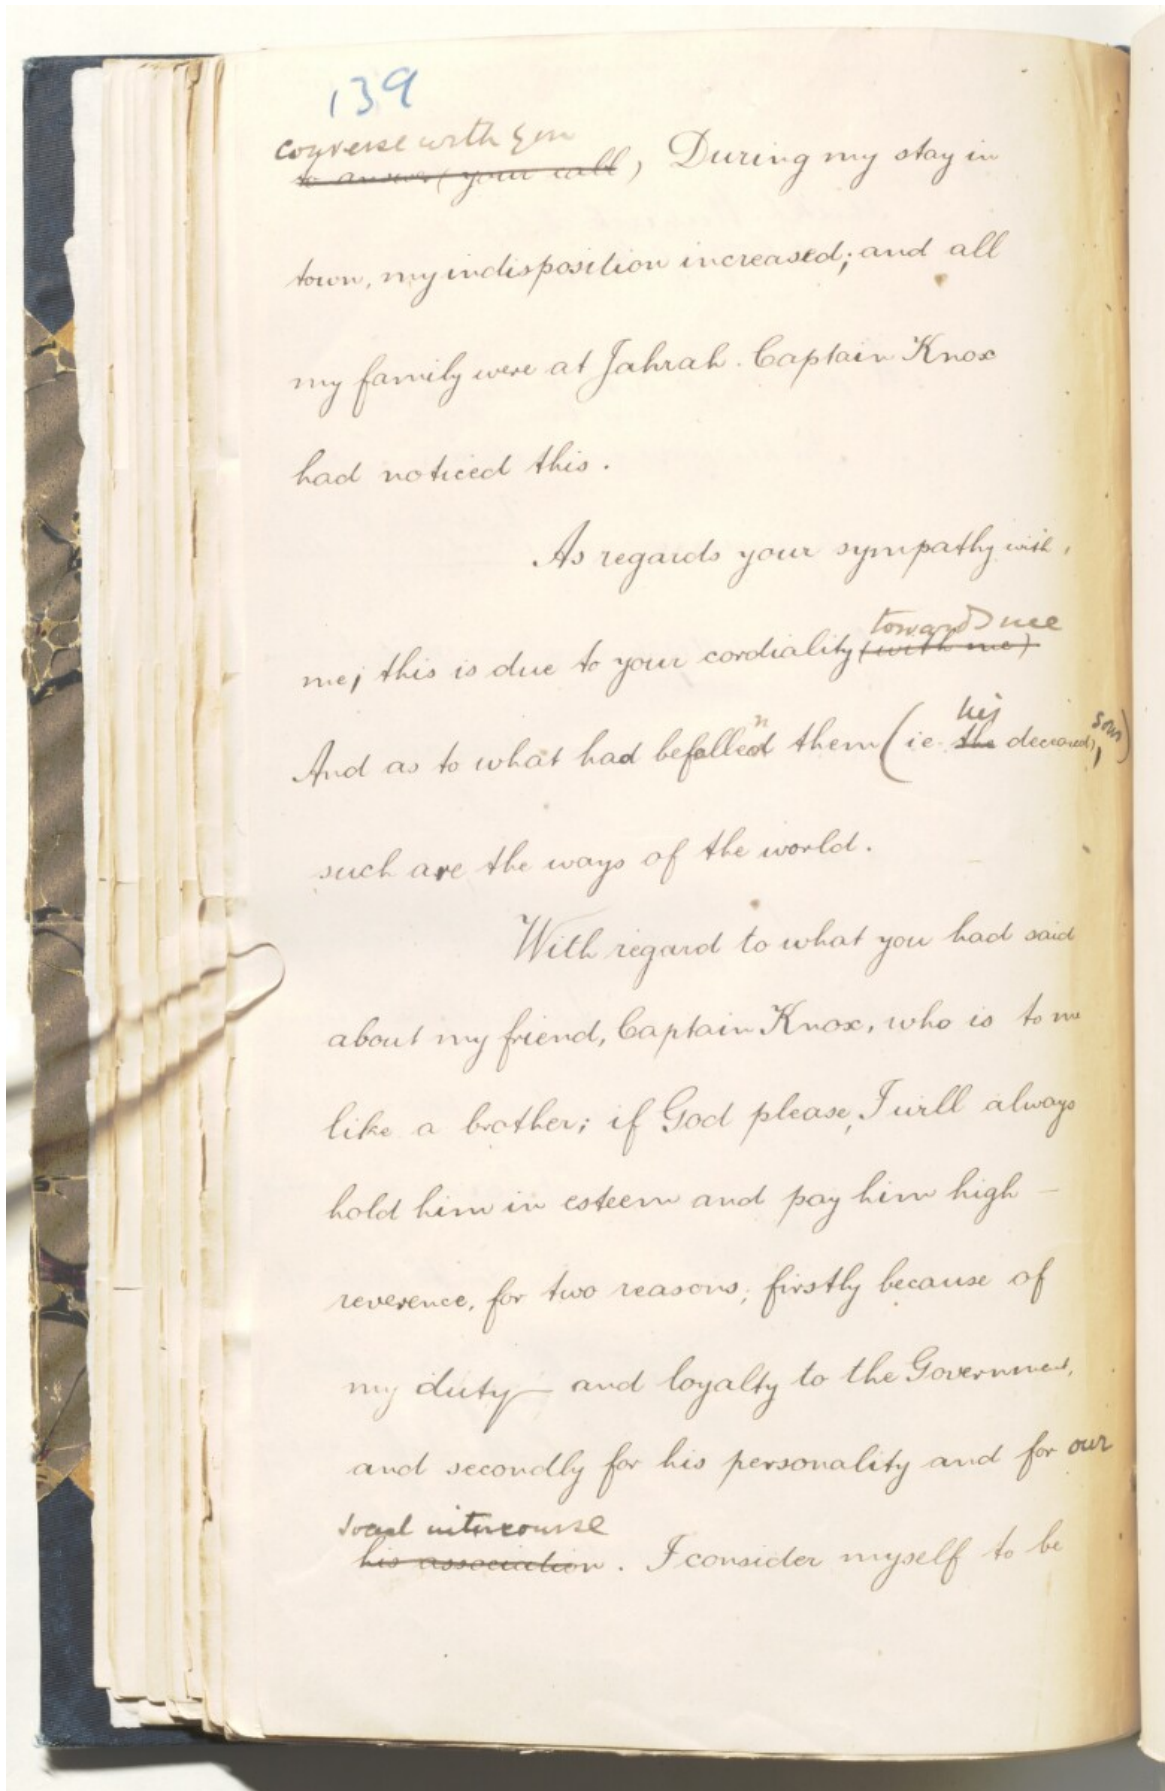 139
converse with you
to answer (your call) During my stay in
town, my indisposition increased; and all
my family were at Jahrah. Captain Knox
had noticed this.
As regards your sympathy with,
towards me
me, this is due to your cordiality (with me)
his
And as to what had befallen them (ie the deceased, son)
such are the ways of the world.
With regard to what you had said
about my friend, Captain Knox, who is to me
like a brother; if God please, I will always
hold him in esteem and pay him high –
reverence, for two reasons; firstly because of
my duty – and loyalty to the Government,
and secondly for his personality and for our
social intercourse
his association. I consider myself to be